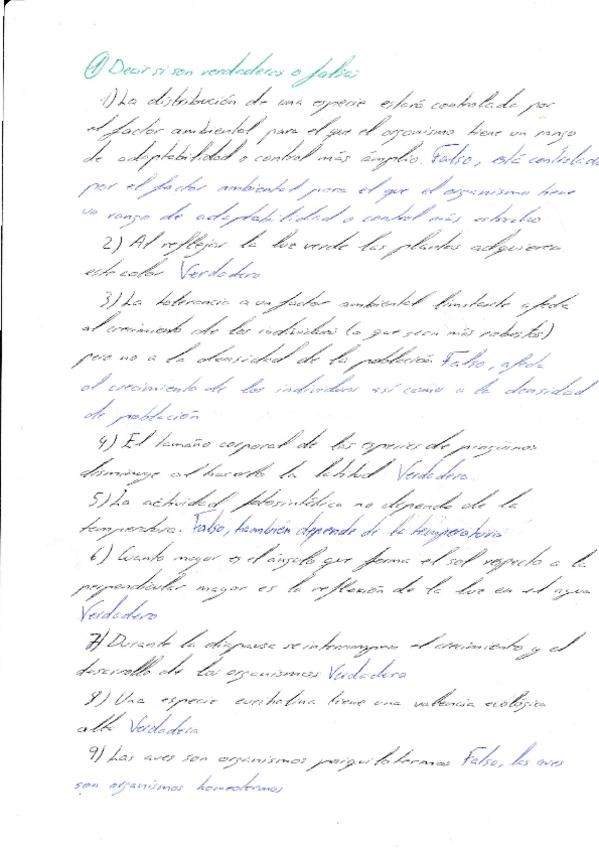 ① Decir si son verdaderas o falsas
1) La distribución de una especie estará controlada por
el factor ambiental para el que el organismo tiene un rango
de adaptabilidad o control más amplio. Falso, está controlada
por el factor ambiental para el que el organismo tiene
un rango de adaptabilidad o control más estrecho
2) Al reflejar la luz verde las plantas adquieren
este color Verdadero
3) La tolerancia a un factor ambiental limitante afecta
al crecimiento de los individuos (a que sean más robustos)
pero no a la densidad de la población Falso, afecta
al crecimiento de los individuos así como a la densidad
de población
4) El tamaño corporal de las especies de pingüinos
disminuye al hacerlo la latitud Verdadero.
5) La actividad fotosintética no depende de la
temperatura. Falso, también depende de la temperatura
6) Cuanto mayor es el ángulo que forma el sol respecto a la
perpendicular mayor es la reflexión de la luz en el agua
Verdadero
7) Durante la diapausa se interrumpen el crecimiento y el
desarrollo de los organismos Verdadero
8) Una especie eurihalina tiene una valencia ecológica
alta Verdadero
9) Las aves son organismos poiquilotermos Falso, las aves
son organismos homeotermos